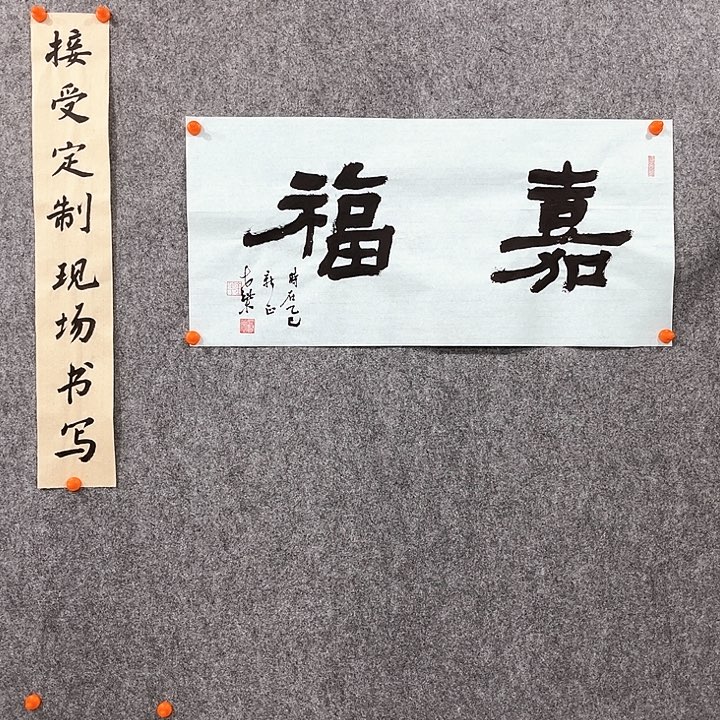 接受定制现场书写
嘉福
時在乙巳
新正